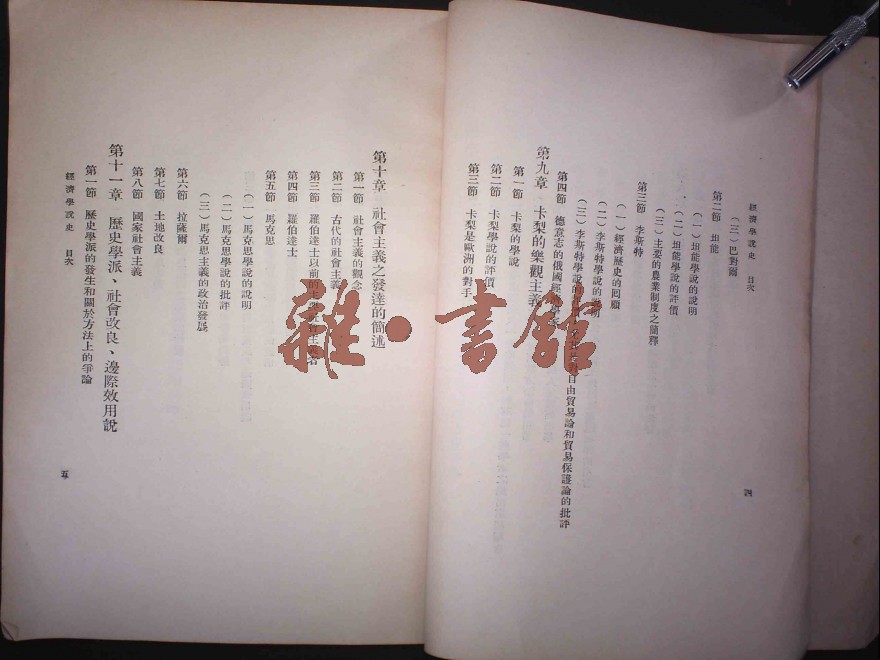 經濟學說史　目次
（三）巴對爾
第二節　坦能
（一）坦能學說的說明
（二）坦能學說的評價
（三）主要的農業制度之簡釋
第三節　李斯特
（一）經濟歷史的回顧
（二）李斯特學說的說明
（三）李斯特學說的 自由貿易論和貿易保護論的批評
第四節　德意志的俄國經濟學派
第九章　卡梨的樂觀主義
第一節　卡梨的學說
第二節　卡梨學說的評價
第三節　卡梨是歐洲的對手
四
第十章　社會主義之發達的簡述
第一節　社會主義的觀念
第二節　古代的社會主義
第三節　羅伯達士以前的
第四節　羅伯達士
第五節　馬克思
（一）馬克思學說的說明
（二）馬克思學說的批評
（三）馬克思主義的政治發展
第六節　拉薩爾
第七節　土地改良
第八節　國家社會主義
第十一章　歷史學派、社會改良、邊際效用說
第一節　歷史學派的發生和關於方法上的爭論
經濟學說史　目次
五
雜·書館